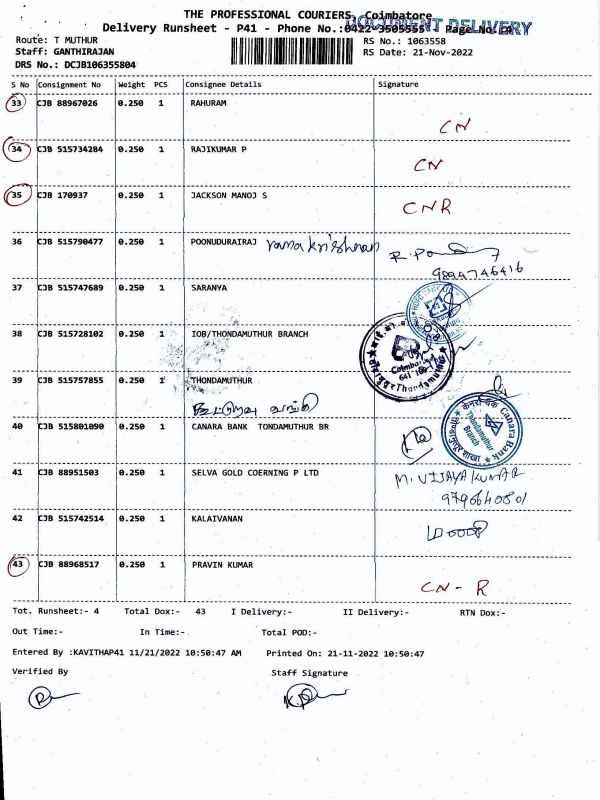 THE PROFESSIONAL COURIERS, Coimbatore
DOCUMENT DELIVERY
Delivery Runsheet - P41 - Phone No.:0422-3505555 - Page No.:4
Route: T MUTHUR RS No.: 1063558
Staff: GANTHIRAJAN RS Date: 21-Nov-2022
DRS No.: DCJB106355804
S No Consignment No Weight PCS Consignee Details Signature
33 CJB 88967026 0.250 1 RAHURAM
CN
34 CJB 515734284 0.250 1 RAJIKUMAR P
CN
35 CJB 170937 0.250 1 JACKSON MANOJ S
CNR
36 CJB 515790477 0.250 1 POONUDURAIRAJ ramakrishnan
9894746416
37 CJB 515747689 0.250 1 SARANYA
38 CJB 515728102 0.250 1 IOB/THONDAMUTHUR BRANCH
Coimbatore
641 109
Thondamuthur
39 CJB 515757855 0.250 1 THONDAMUTHUR
கூட்டுறவு வங்கி
40 CJB 515801090 0.250 1 CANARA BANK TONDAMUTHUR BR
केनरा बैंक Canara Bank
Thondamuthur
Branch
41 CJB 88951503 0.250 1 SELVA GOLD COERNING P LTD
M. VIJAYAKUMAR
9796640801
42 CJB 515742514 0.250 1 KALAIVANAN
43 CJB 88968517 0.250 1 PRAVIN KUMAR
CN - R
Tot. Runsheet:- 4 Total Dox:- 43 I Delivery:- II Delivery:- RTN Dox:-
Out Time:- In Time:- Total POD:-
Entered By :KAVITHAP41 11/21/2022 10:50:47 AM Printed On: 21-11-2022 10:50:47
Verified By Staff Signature